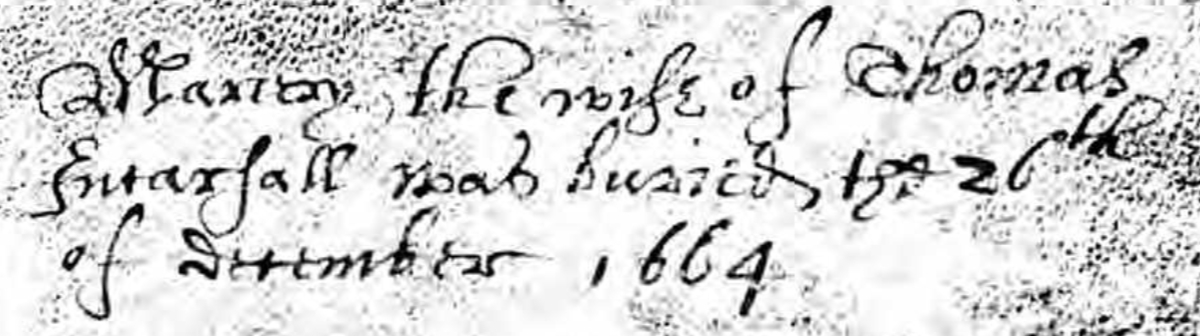 Marcey the wife of Thomas
Intarsall was buried the 26th
of december 1664